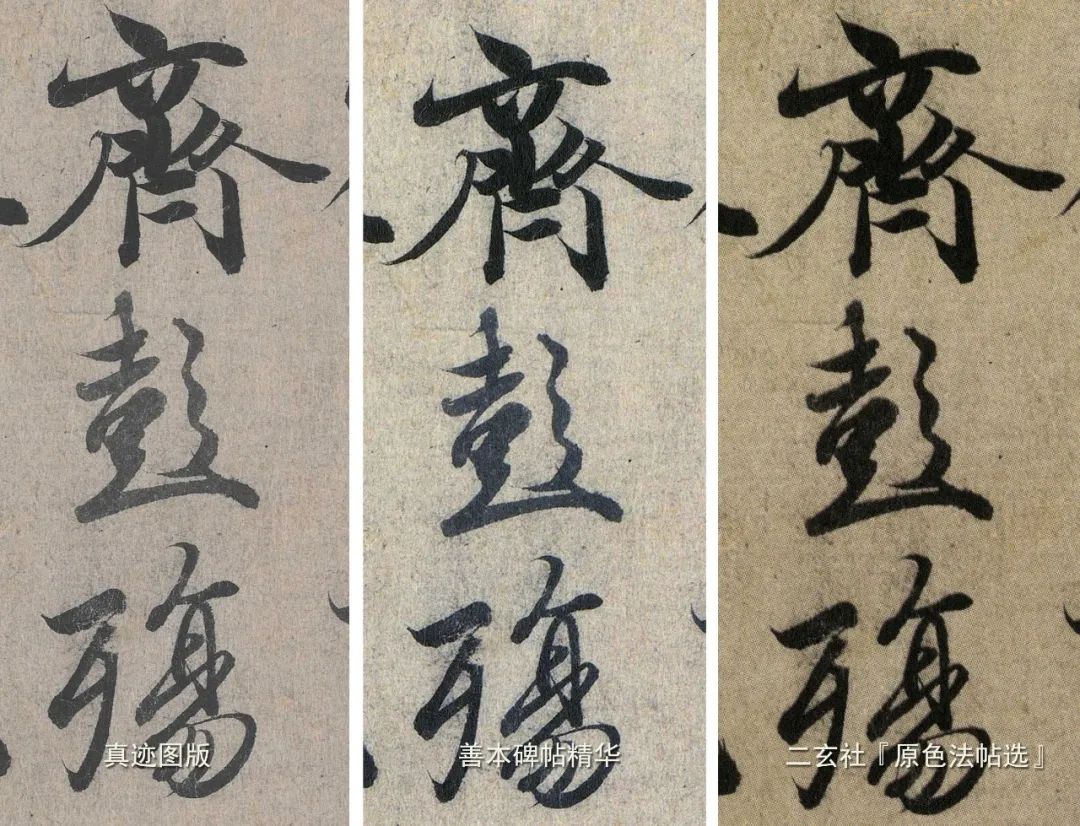 齊彭殤
真迹图版
齊彭殤
善本碑帖精华
齊彭殤
二玄社『原色法帖选』